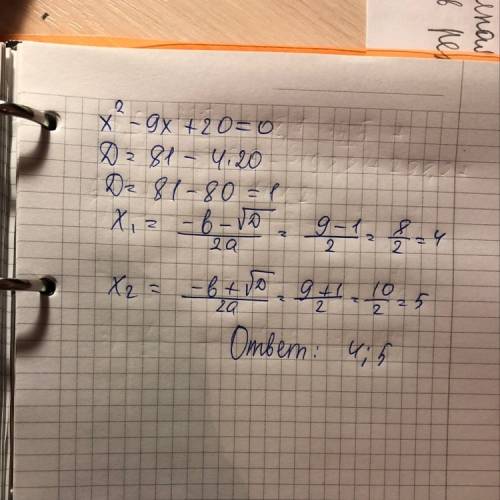 x² - 9x + 20 = 0
D = 81 - 4·20
D = 81 - 80 = 1
x₁ = (-b - √D)/2a = (9 - 1)/2 = 8/2 = 4
x₂ = (-b + √D)/2a = (9 + 1)/2 = 10/2 = 5
Ответ: 4; 5